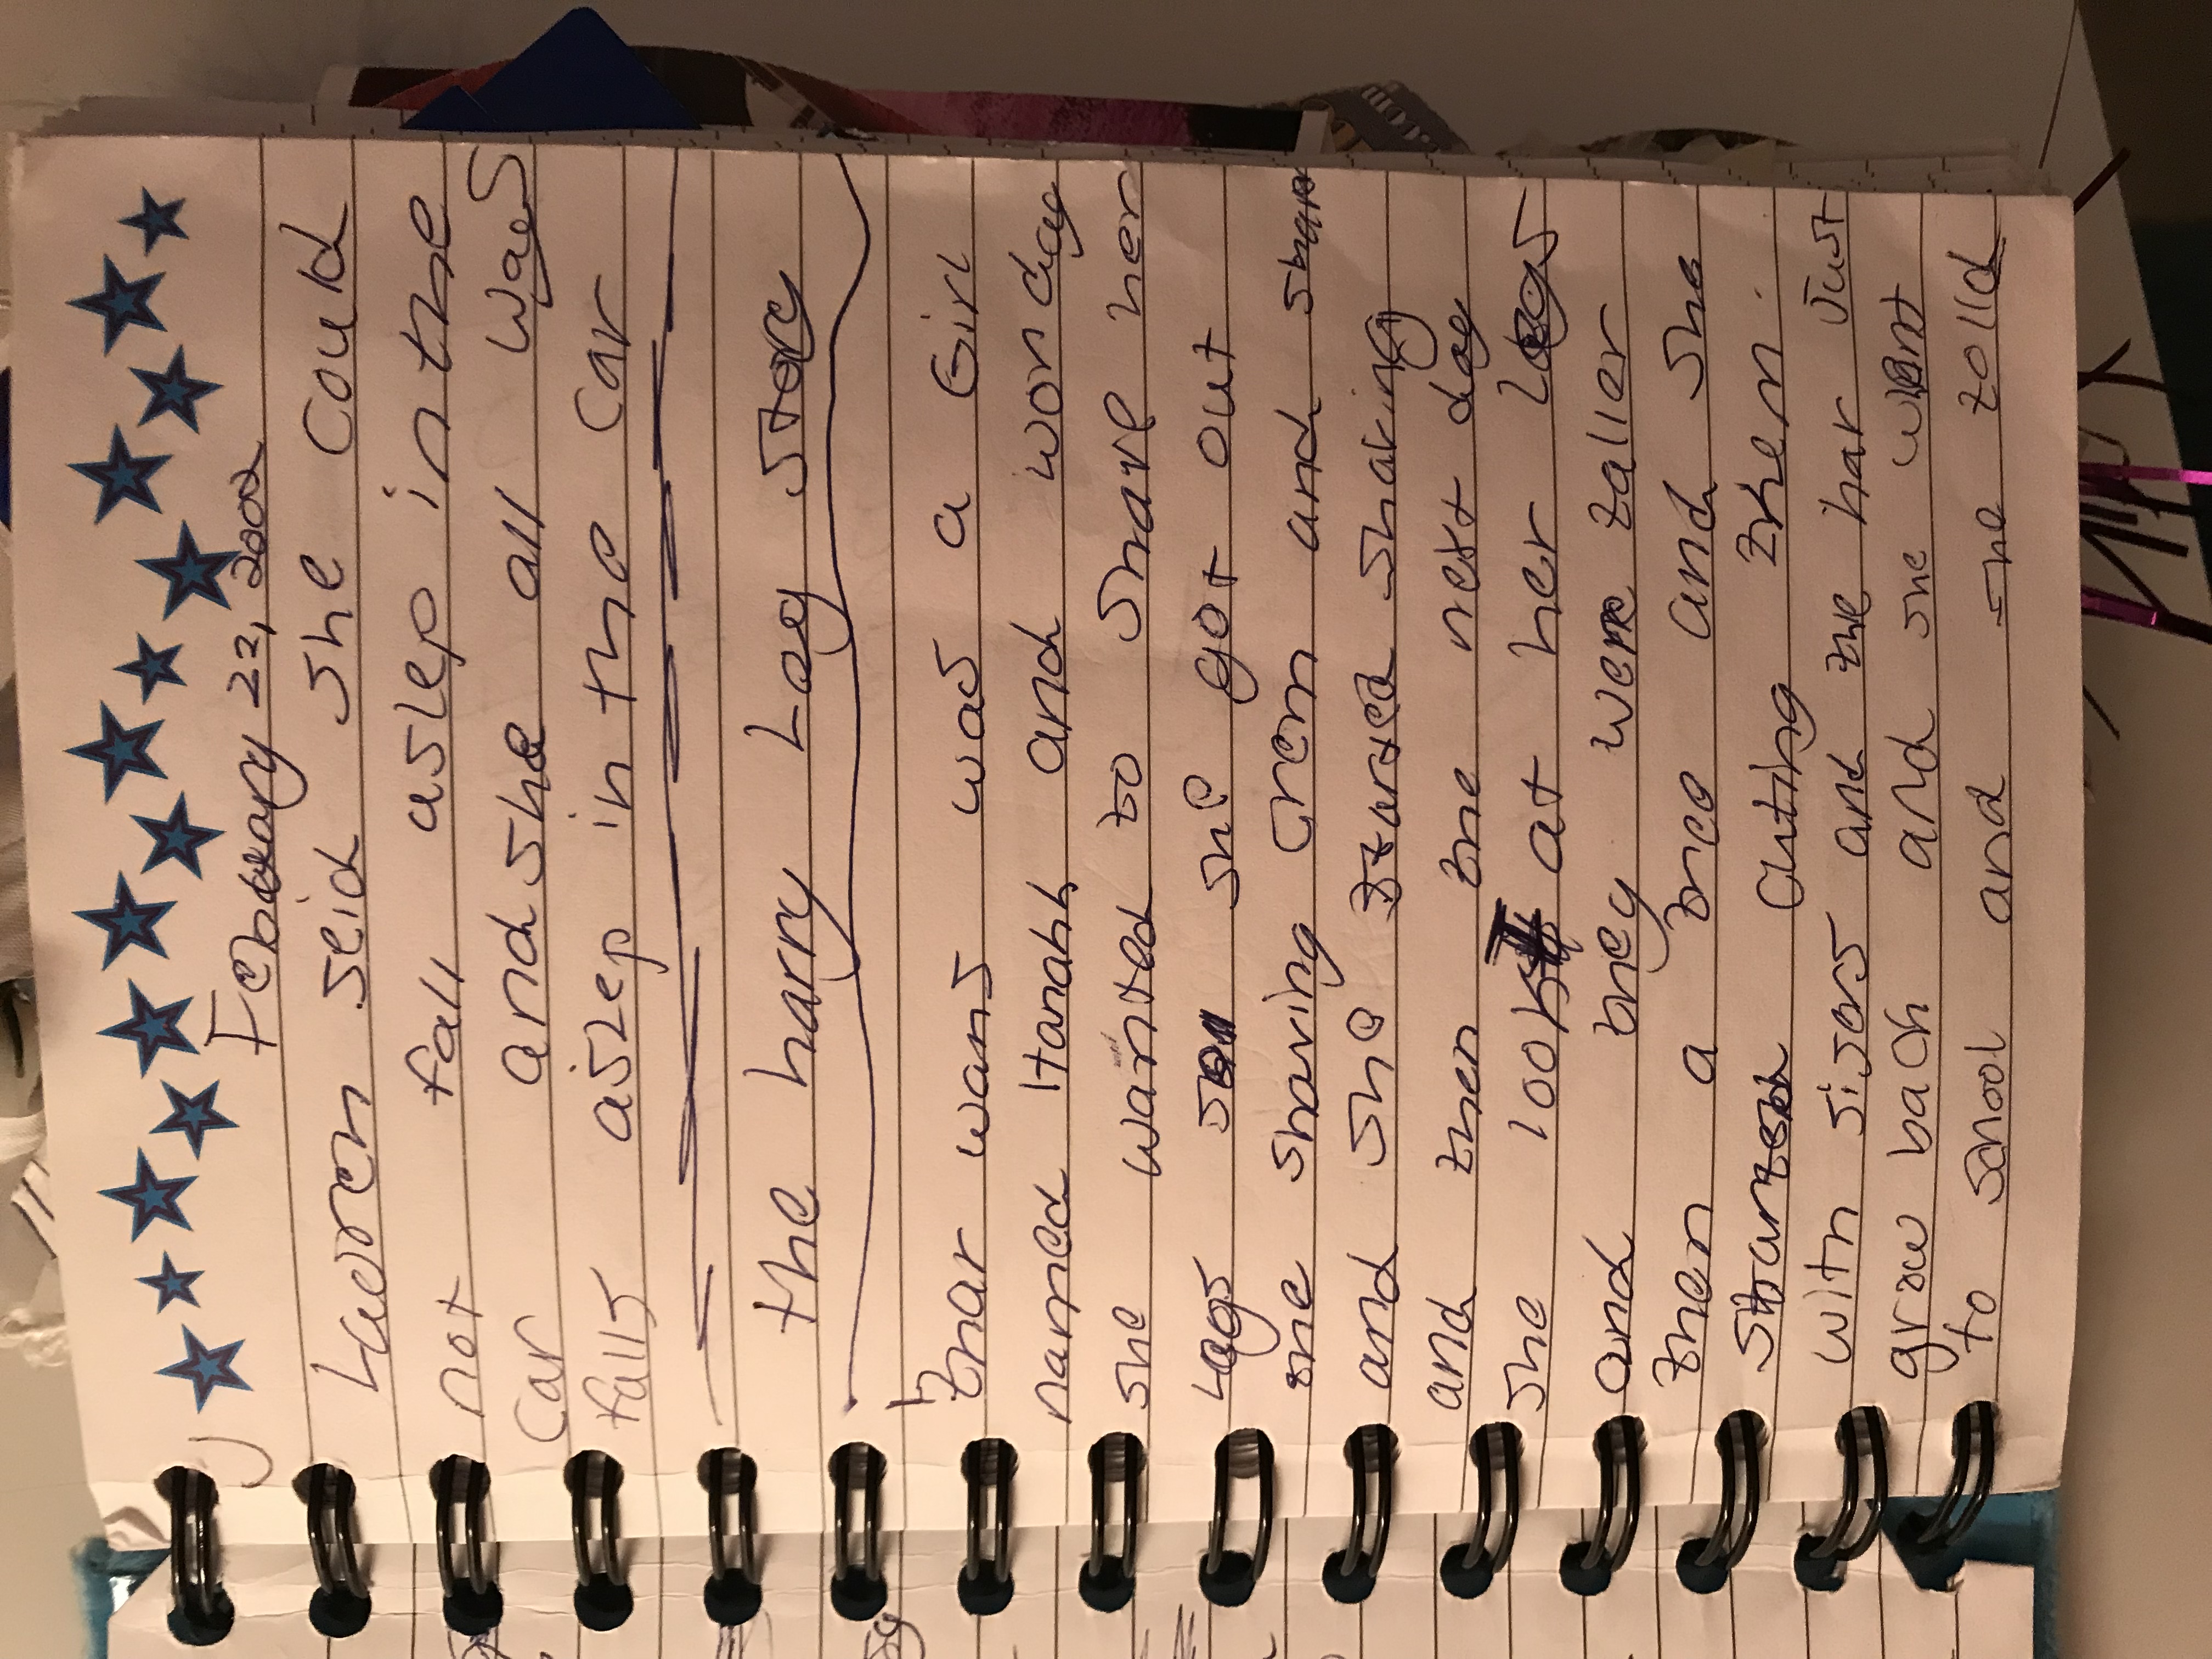 February 22, 2002
Lauren seid she could
not fall aslep in the
car and she all ways
falls aslep in the car
the harry Leg Story
thar wans was a Girl
named Hanah and won day
she wanted to shave her
Legs she got out
the shaving crem and
and she started shaving
and then the next day
she look at her Legs
and they were taller
then a tree and she
started cuting them.
with sisors and the har Just
grow bach and she went
to school and she tolld